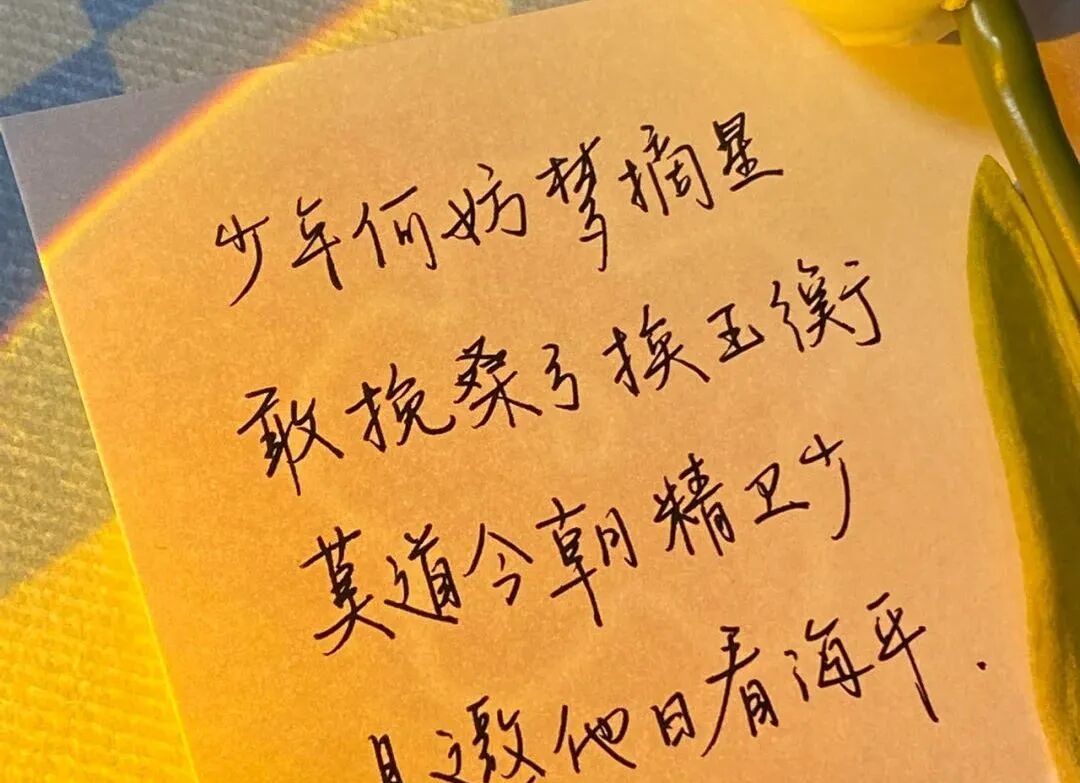 少年何妨梦摘星
敢挽桑弓换玉衡
莫道今朝精卫少
且邀他日看海平.